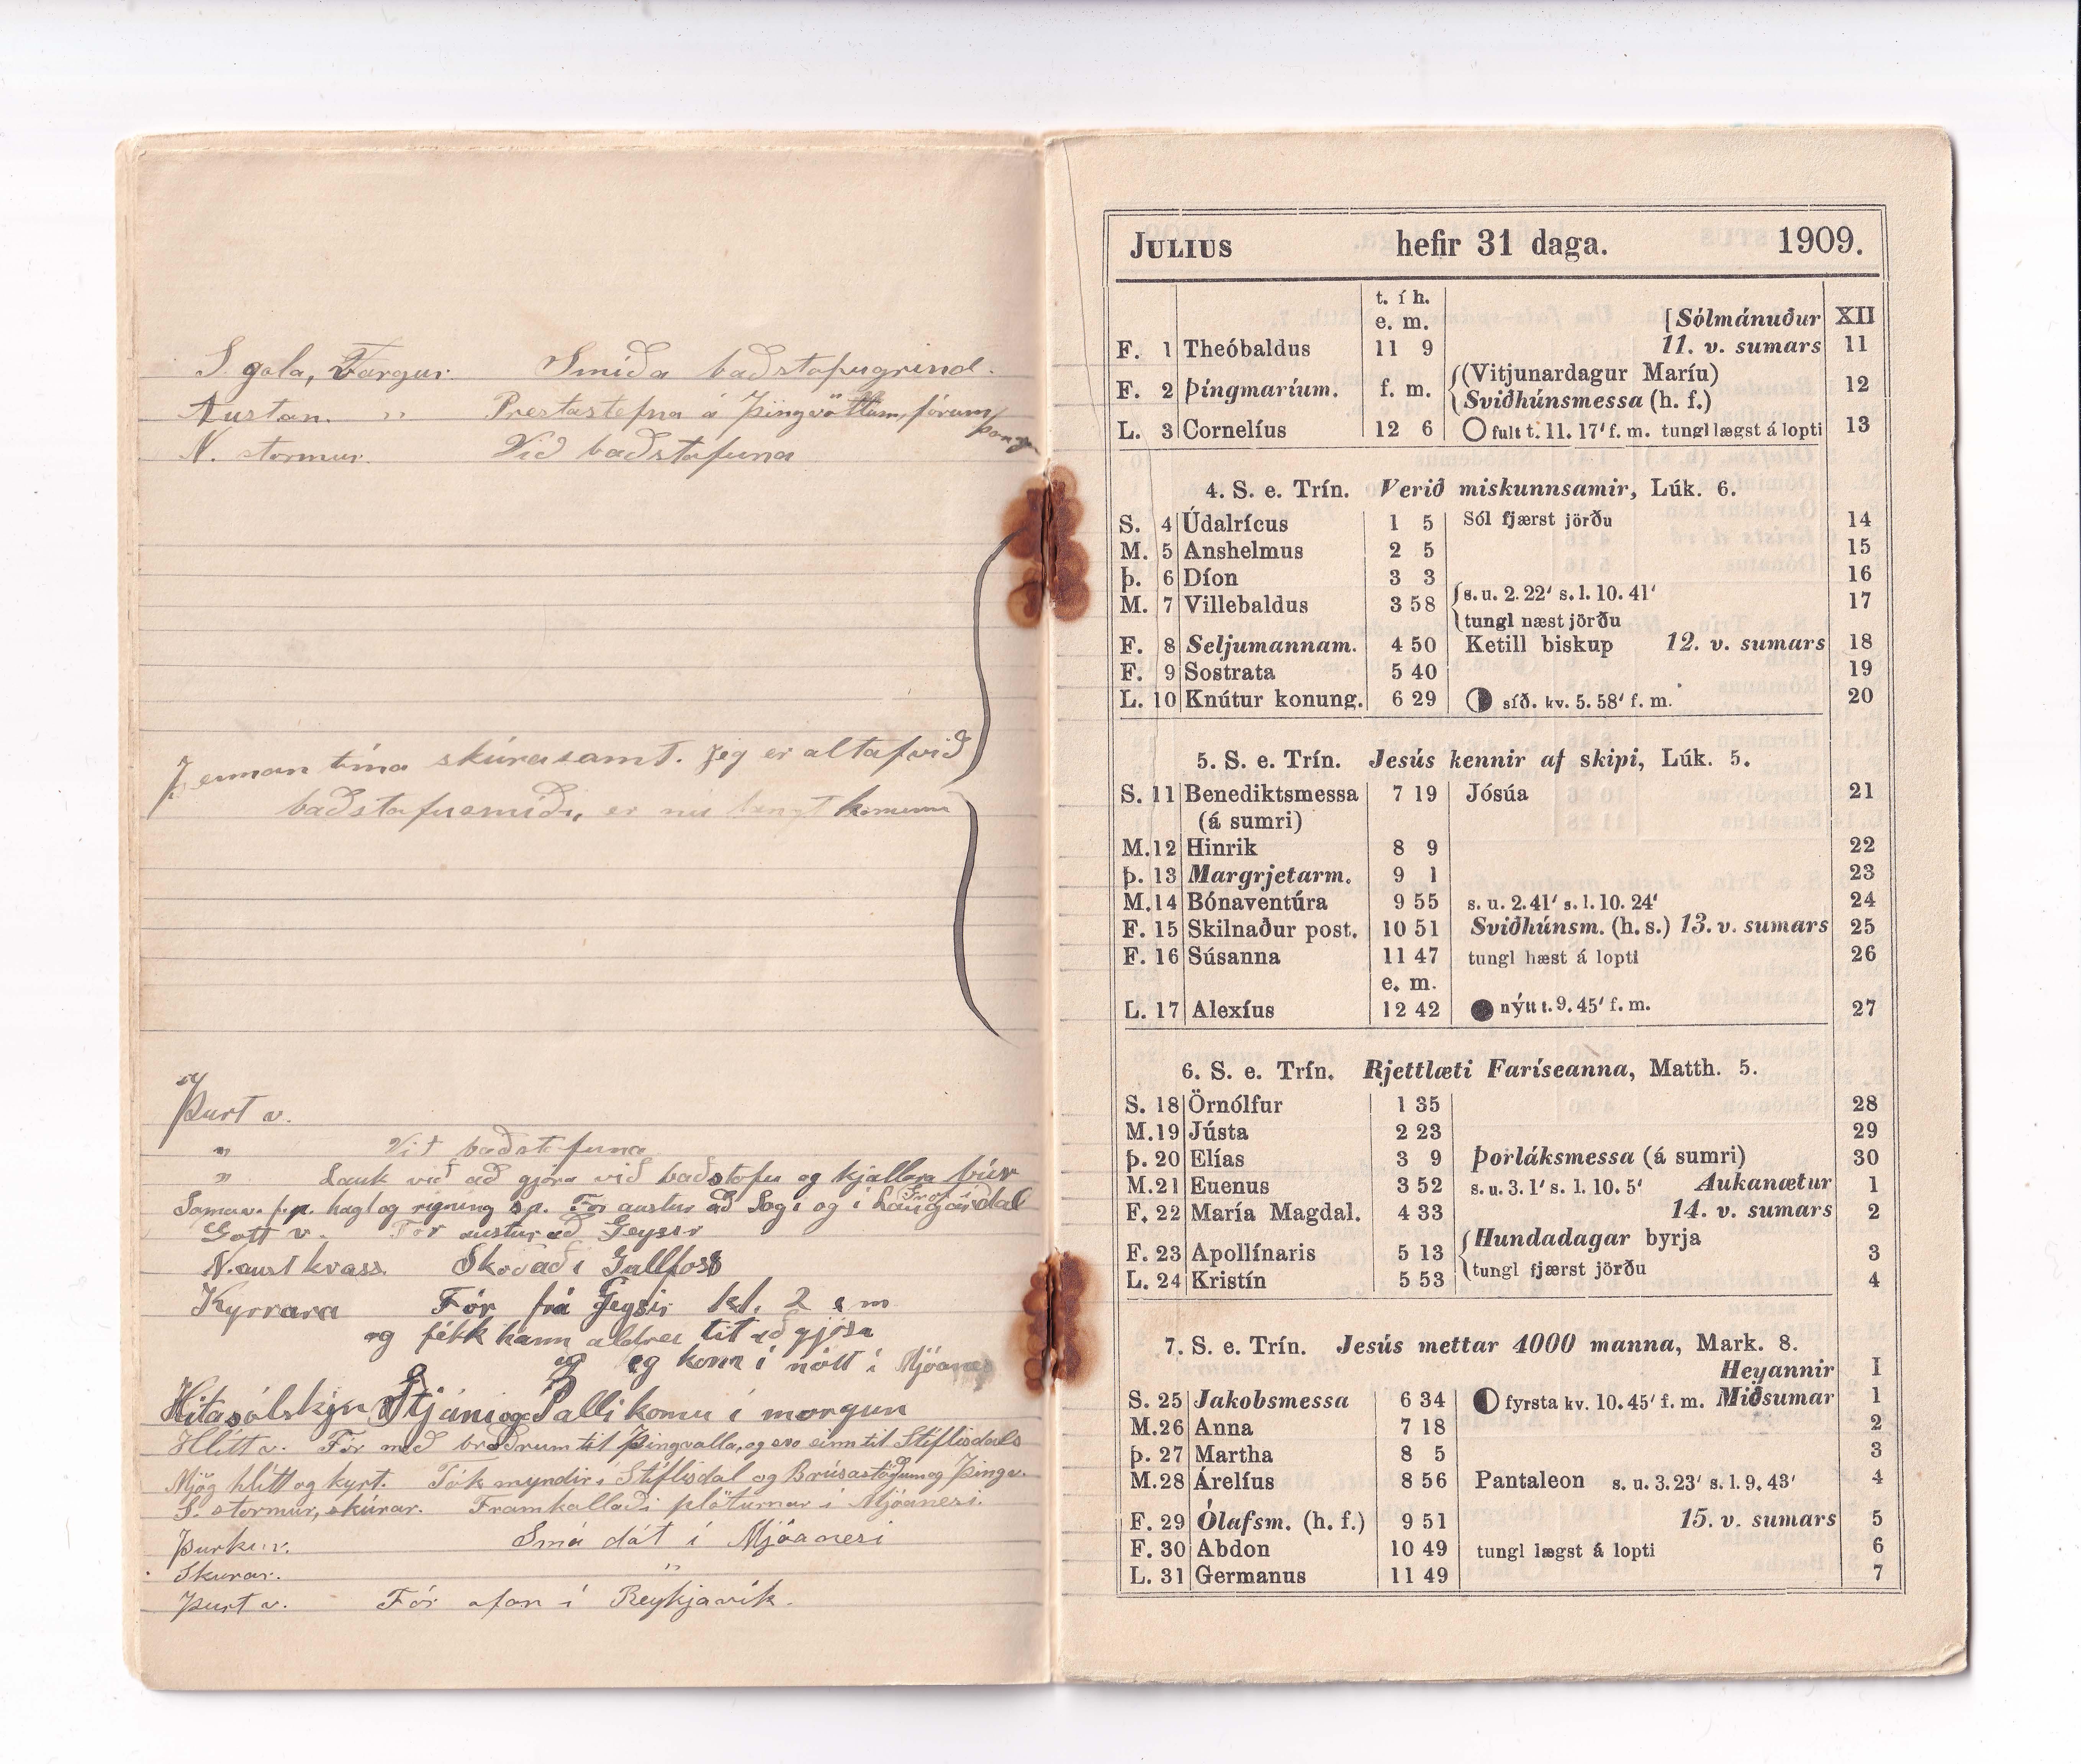 S. gola, Fargur. Smíða baðstofugrind.
Austan. " Prestastefna á Þingvöllum, fórum
þang
N. stormur. Við baðstofuna
Þennan tíma skúrasamt. Jeg er altaf við
baðstofusmíði, er nú langt kominn
Þurt v.
" Við baðstofuna
" Lauk við að gjöra við baðstofu og kjallara búr
Sama v. f.p. hagl og rigning sp. Fór austur að Sogi og í Laugardal
Gott v. Fór austur að Geysir
N.aust kvass Skoðaði Gullfoss
Kyrrara Fór frá Geysir kl. 2 e m
og fékk hann aldrei til að gjósa
og kom í nótt í Mjóanes
Hita sólskin Stjáni og Palli komu í morgun
Hlítt v. Fór með bræðrum til Þingvalla, og svo einn til Stíflisdals
Mjög hlítt og kyrt. Tók myndir í Stíflisdal og Brúsastöðum og Þingv.
S. stormur, skúrar. Framkallaði plöturnar í Mjóanesi.
Þurku v. Smá dót í Mjóanesi
Skúrar. "
Þurt v. Fór ofan í Reykjavík.
JULIUS hefir 31 daga. 1909.
t. í h.
e. m. [Sólmánuður XII
F. 1 Theóbaldus 11 9 11. v. sumars 11
F. 2 Þingmaríum. f. m. (Vitjunardagur Maríu) 12
Sviðhúnsmessa (h. f.)
L. 3 Cornelíus 12 6 fult t. 11. 17' f. m. tungl lægst á lopti 13
4. S. e. Trín. Verið miskunnsamir, Lúk. 6.
S. 4 Údalrícus 1 5 Sól fjærst jörðu 14
M. 5 Anshelmus 2 5 15
Þ. 6 Díon 3 3 16
M. 7 Villebaldus 3 58 s. u. 2. 22' s. l. 10. 41' 17
tungl næst jörðu
F. 8 Seljumannam. 4 50 Ketill biskup 12. v. sumars 18
F. 9 Sostrata 5 40 19
L. 10 Knútur konung. 6 29 síð. kv. 5. 58' f. m. 20
5. S. e. Trín. Jesús kennir af skipi, Lúk. 5.
S. 11 Benediktsmessa 7 19 Jósúa 21
(á sumri)
M. 12 Hinrik 8 9 22
Þ. 13 Margrjetarm. 9 1 23
M. 14 Bónaventúra 9 55 s. u. 2. 41' s. l. 10. 24' 24
F. 15 Skilnaður post. 10 51 Sviðhúnsm. (h. s.) 13. v. sumars 25
F. 16 Súsanna 11 47 tungl hæst á lopti 26
e. m.
L. 17 Alexíus 12 42 nýtt t. 9. 45' f. m. 27
6. S. e. Trín. Rjettlæti Faríseanna, Matth. 5.
S. 18 Örnólfur 1 35 28
M. 19 Jústa 2 23 29
Þ. 20 Elías 3 9 Þorláksmessa (á sumri) 30
M. 21 Euenus 3 52 s. u. 3. 1' s. l. 10. 5' Aukanætur 1
F. 22 María Magdal. 4 33 14. v. sumars 2
F. 23 Apollínaris 5 13 Hundadagar byrja 3
tungl fjærst jörðu
L. 24 Kristín 5 53 4
7. S. e. Trín. Jesús mettar 4000 manna, Mark. 8.
Heyannir I
S. 25 Jakobsmessa 6 34 fyrsta kv. 10. 45' f. m. Miðsumar 1
M. 26 Anna 7 18 2
Þ. 27 Martha 8 5 3
M. 28 Árelíus 8 56 Pantaleon s. u. 3. 23' s. l. 9. 43' 4
F. 29 Ólafsm. (h. f.) 9 51 15. v. sumars 5
F. 30 Abdon 10 49 tungl lægst á lopti 6
L. 31 Germanus 11 49 7